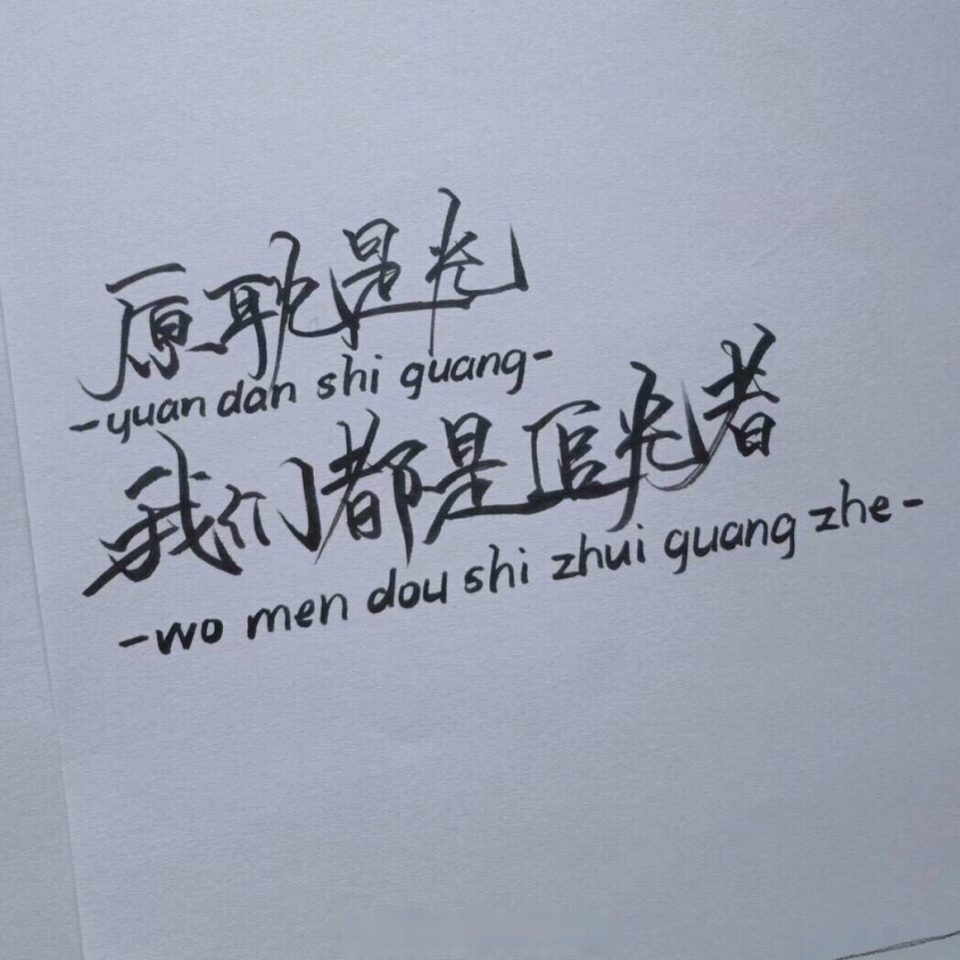 原耽是光
-yuan dan shi guang-
我们都是追光者
-wo men dou shi zhui guang zhe-